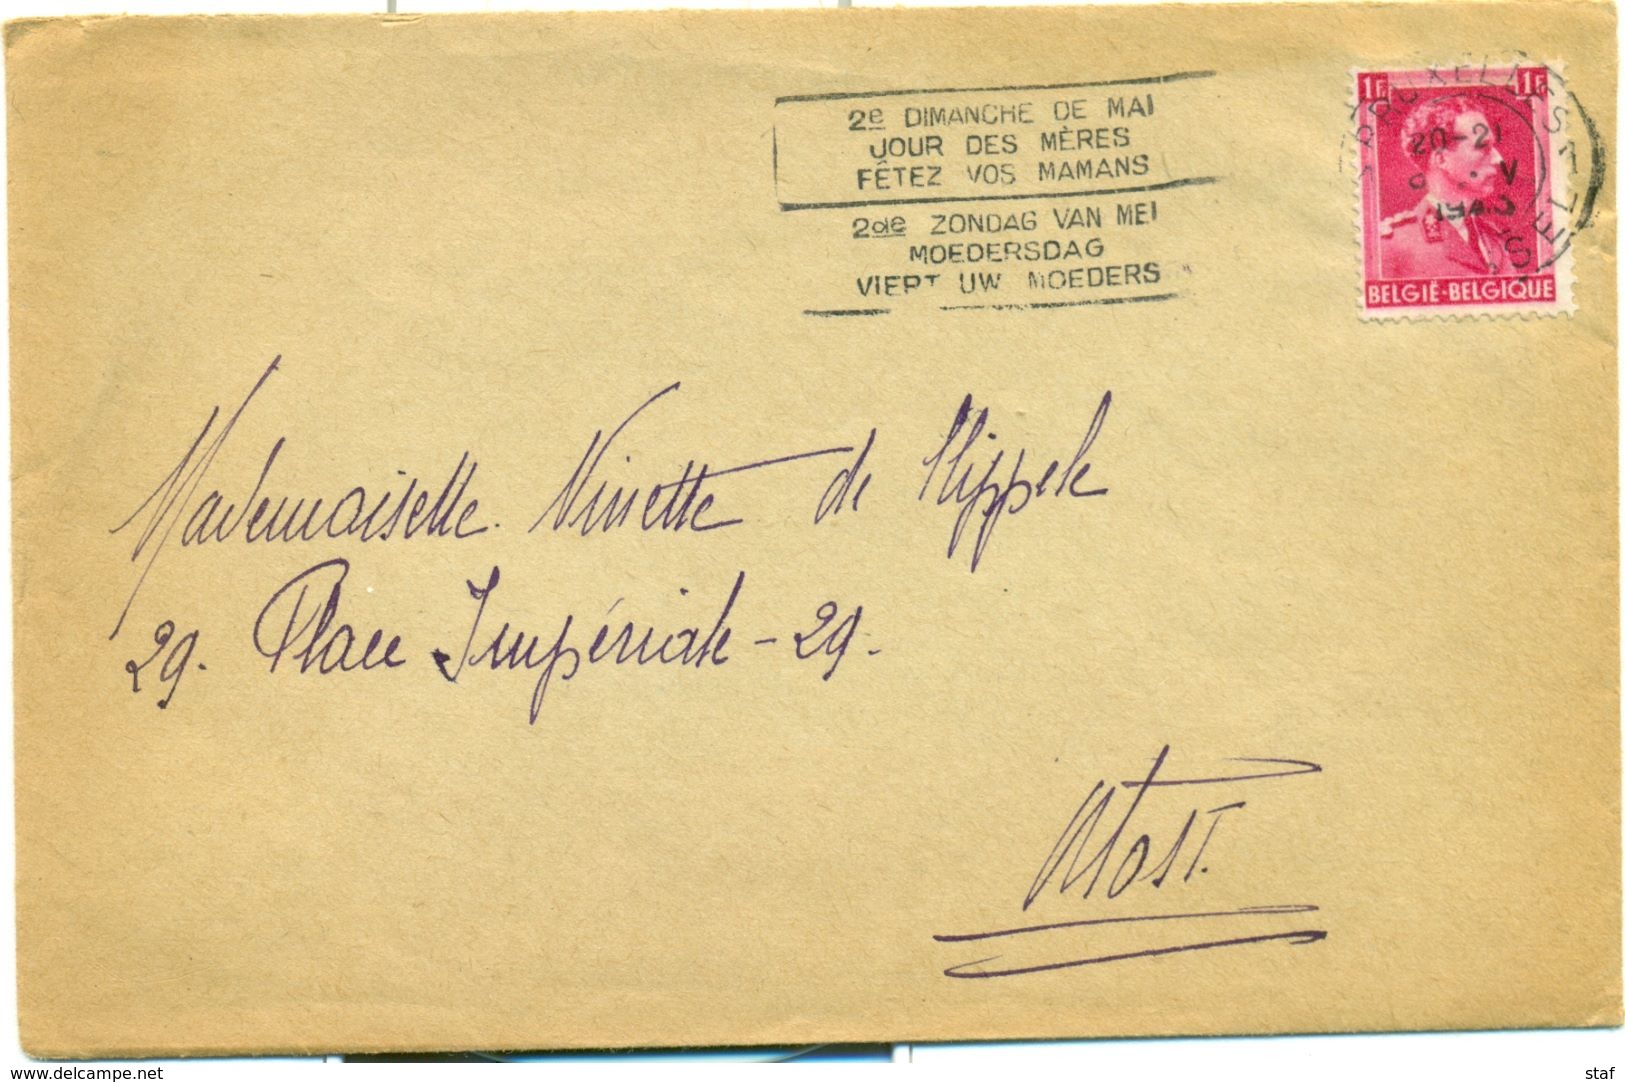 2e DIMANCHE DE MAI
JOUR DES MÈRES
FÊTEZ VOS MAMANS
2de ZONDAG VAN MEI
MOEDERSDAG
VIERT UW MOEDERS
BRUXELLES
20-21
V
1943
1F 1F
BELGIË-BELGIQUE
Mademoiselle Ninette de
29. Place Impériale - 29.
Alost.
www.delcampe.net
staf